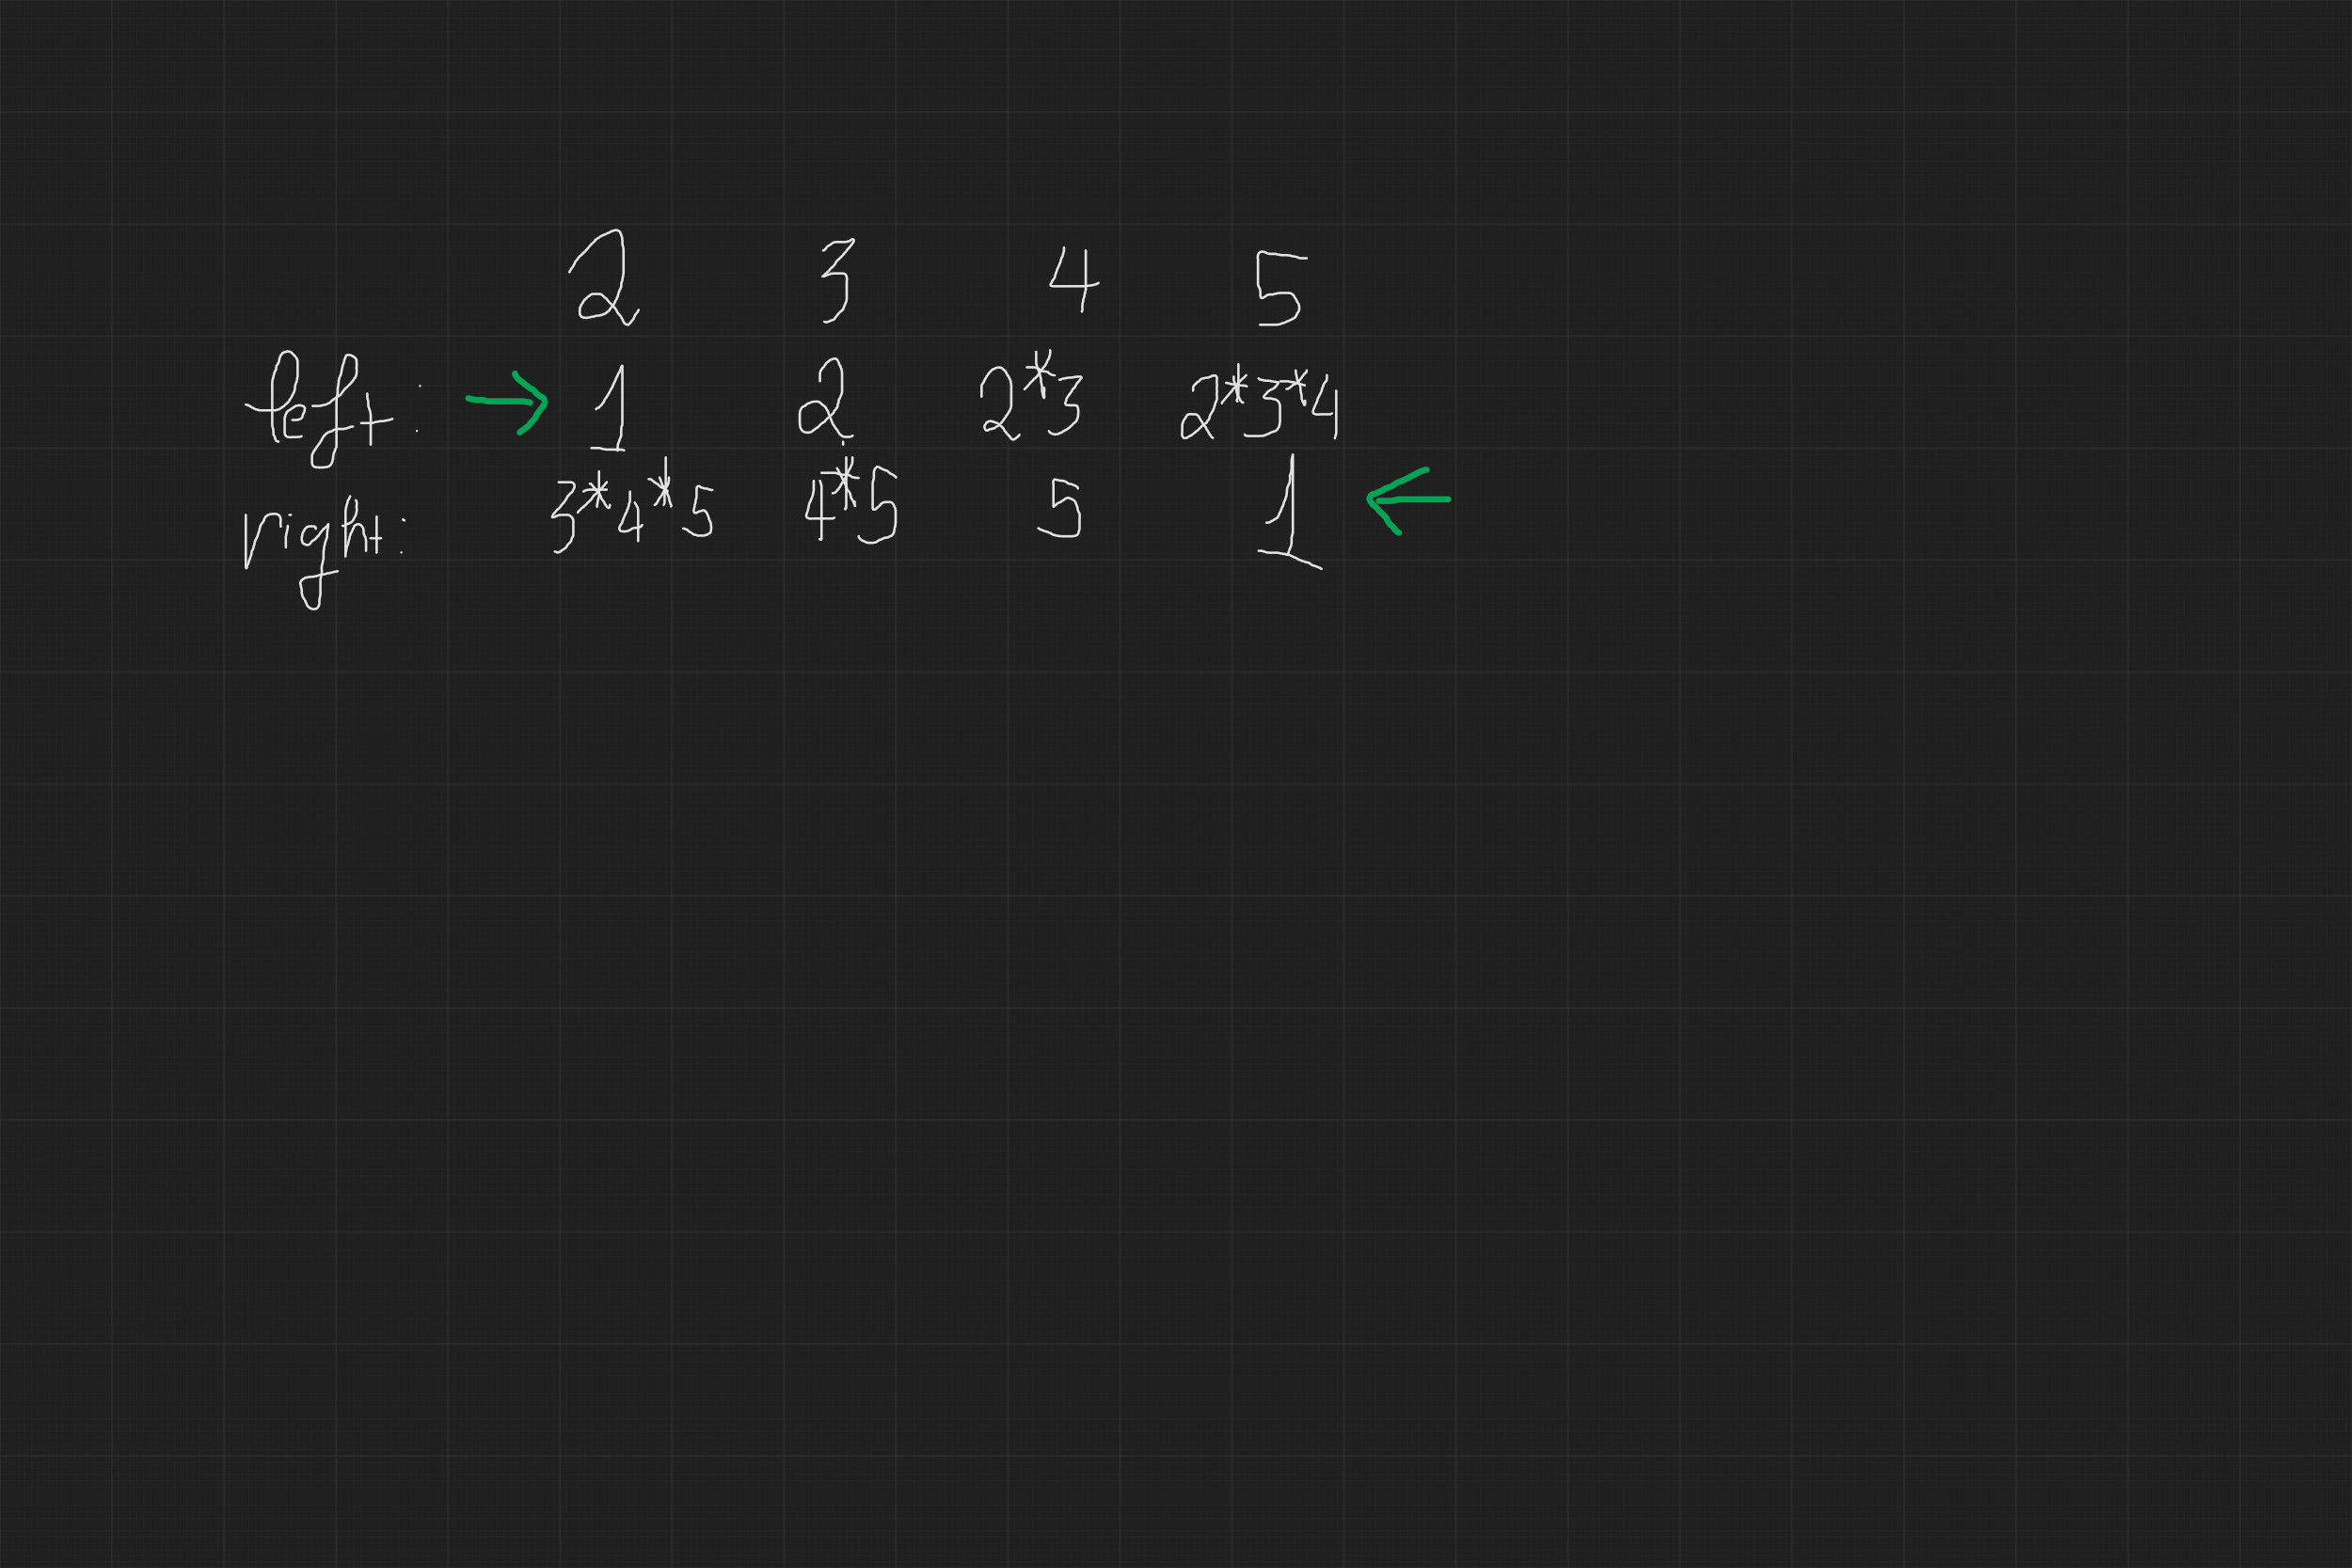 2 3 4 5
left: → 1 2 2*3 2*3*4
right: 3*4*5 4*5 5 1 ←